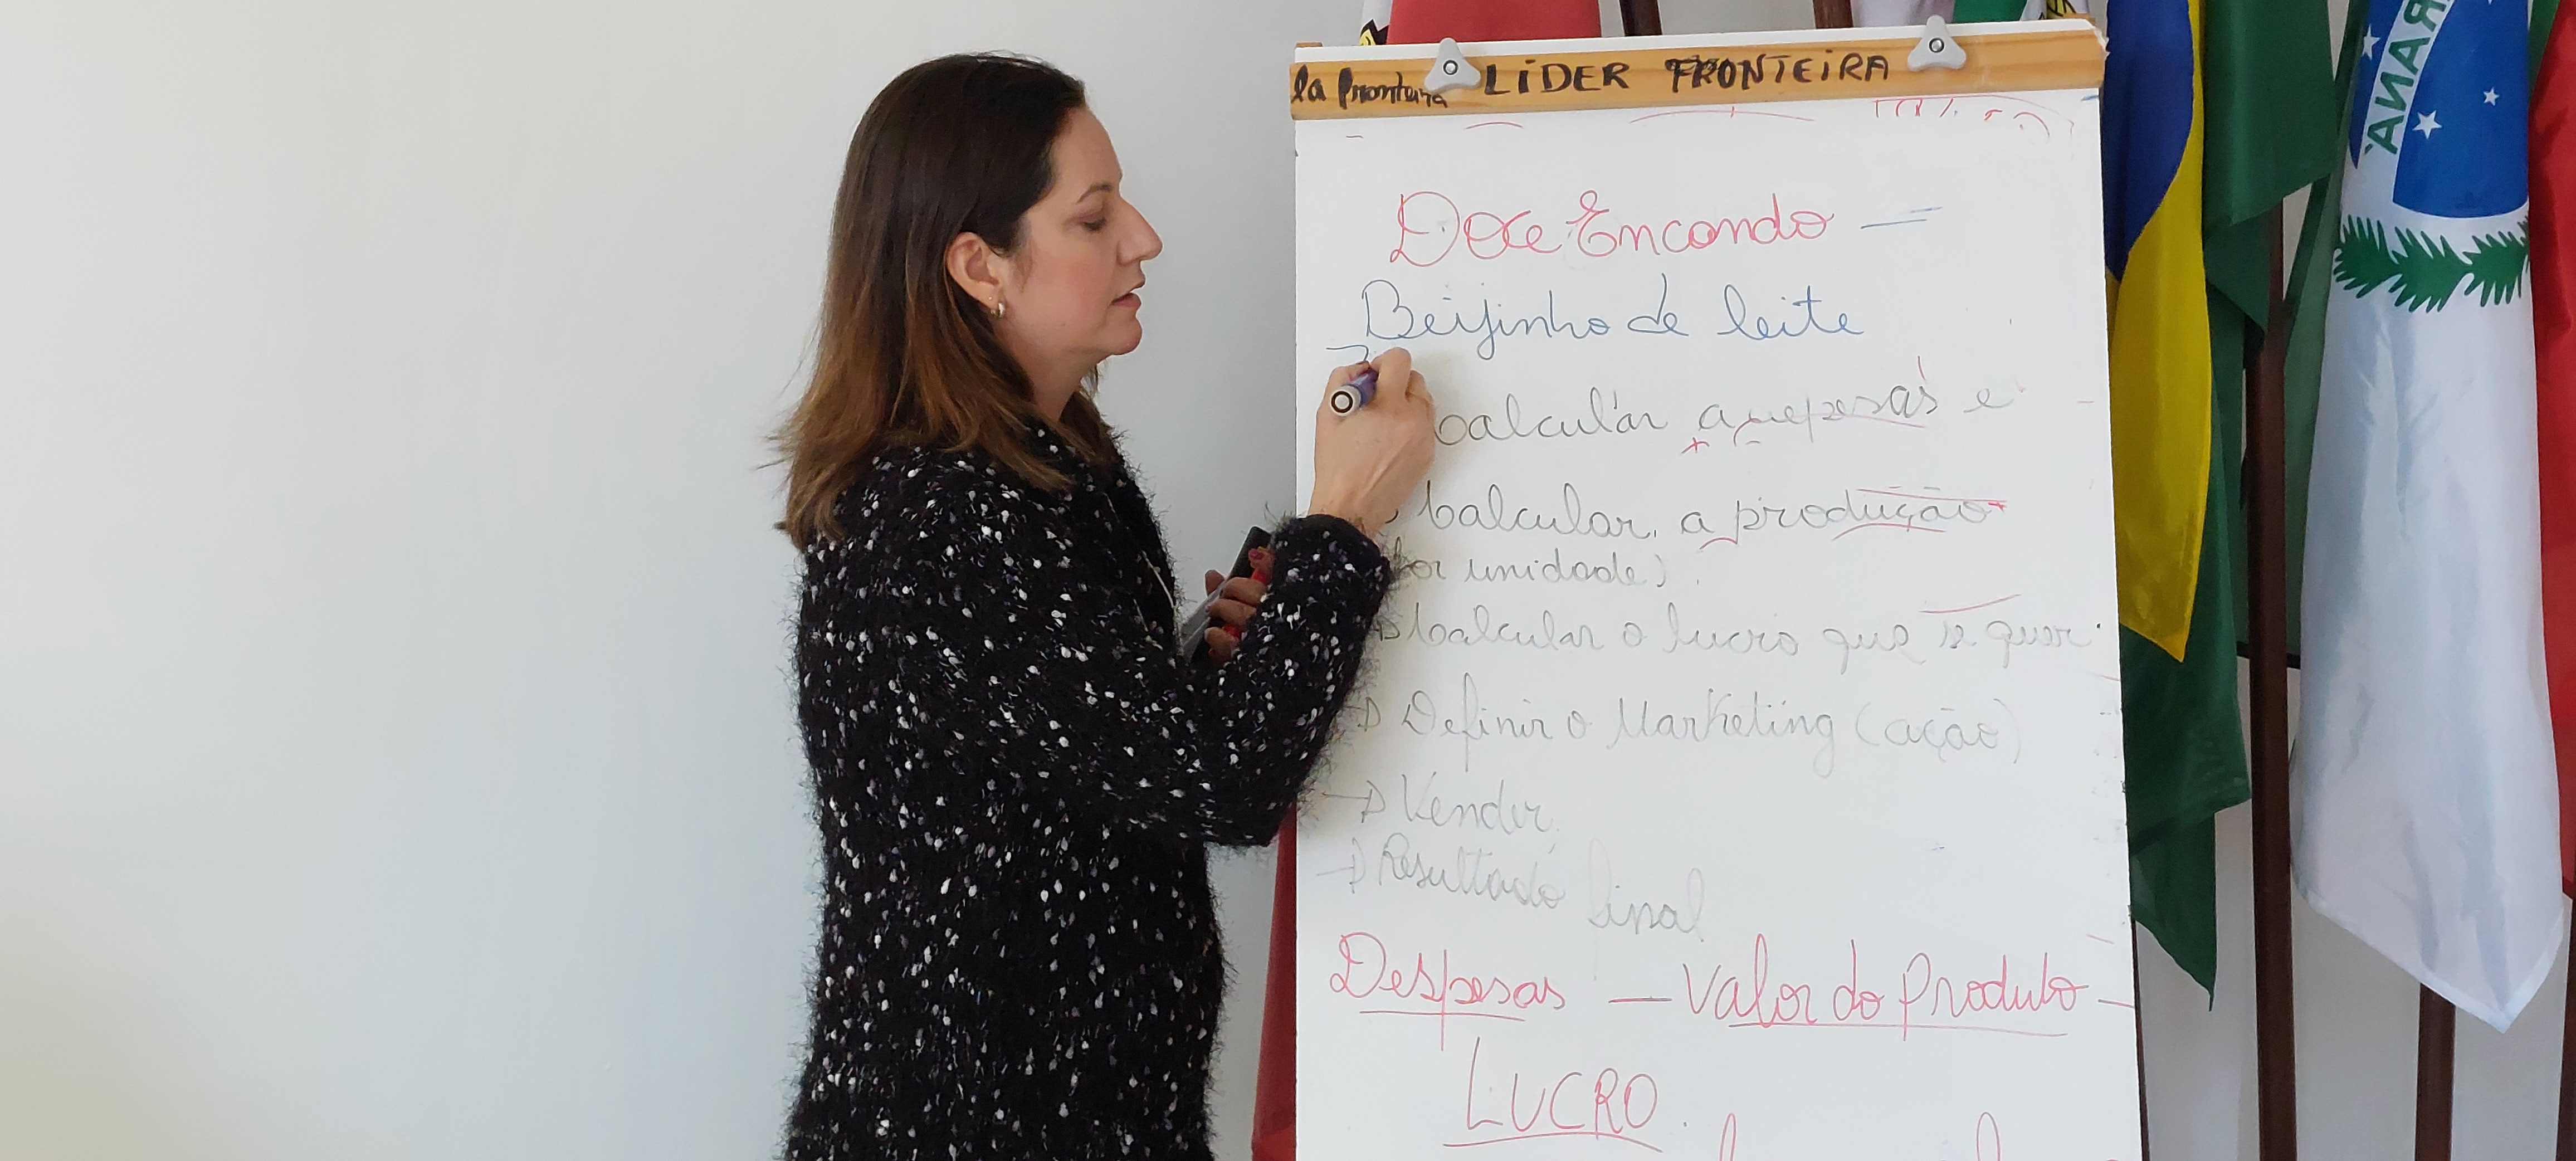 la Fronteira LÍDER FRONTEIRA
Doce Encando —
Beijinho de leite
Calcular as despesas e
Calcular a produção
por unidade)
→ Calcular o lucro que se quer.
→ Definir o Marketing (ação)
→ Vender
→ Resultado final
Despesas — Valor do Produto —
LUCRO
RANÁ